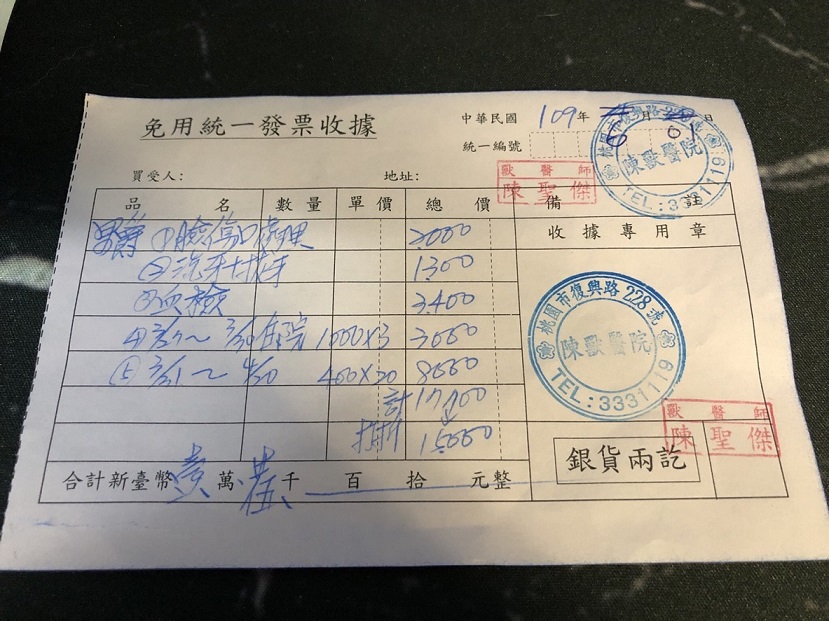 免用統一發票收據
中華民國 109年 6月 日
統一編號
桃園市復興路228號
陳獸醫院
TEL:3331119
獸醫師
陳聖傑
買受人: 地址:
品名 數量 單價 總價 備註
收據專用章
男爵 ①臉傷口處理 2000
1300
③血檢 3400
住院 1000×3 3000
400×20 8000
計 17700
打折 15000
合計新臺幣 壹萬 伍千 百 拾 元整
銀貨兩訖
桃園市復興路228號
陳獸醫院
TEL:3331119
獸醫師
陳聖傑